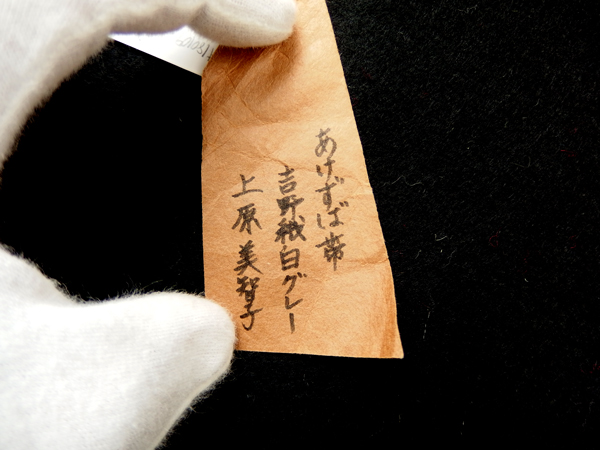 あけずば帯
吉野織白グレー
上原美智子